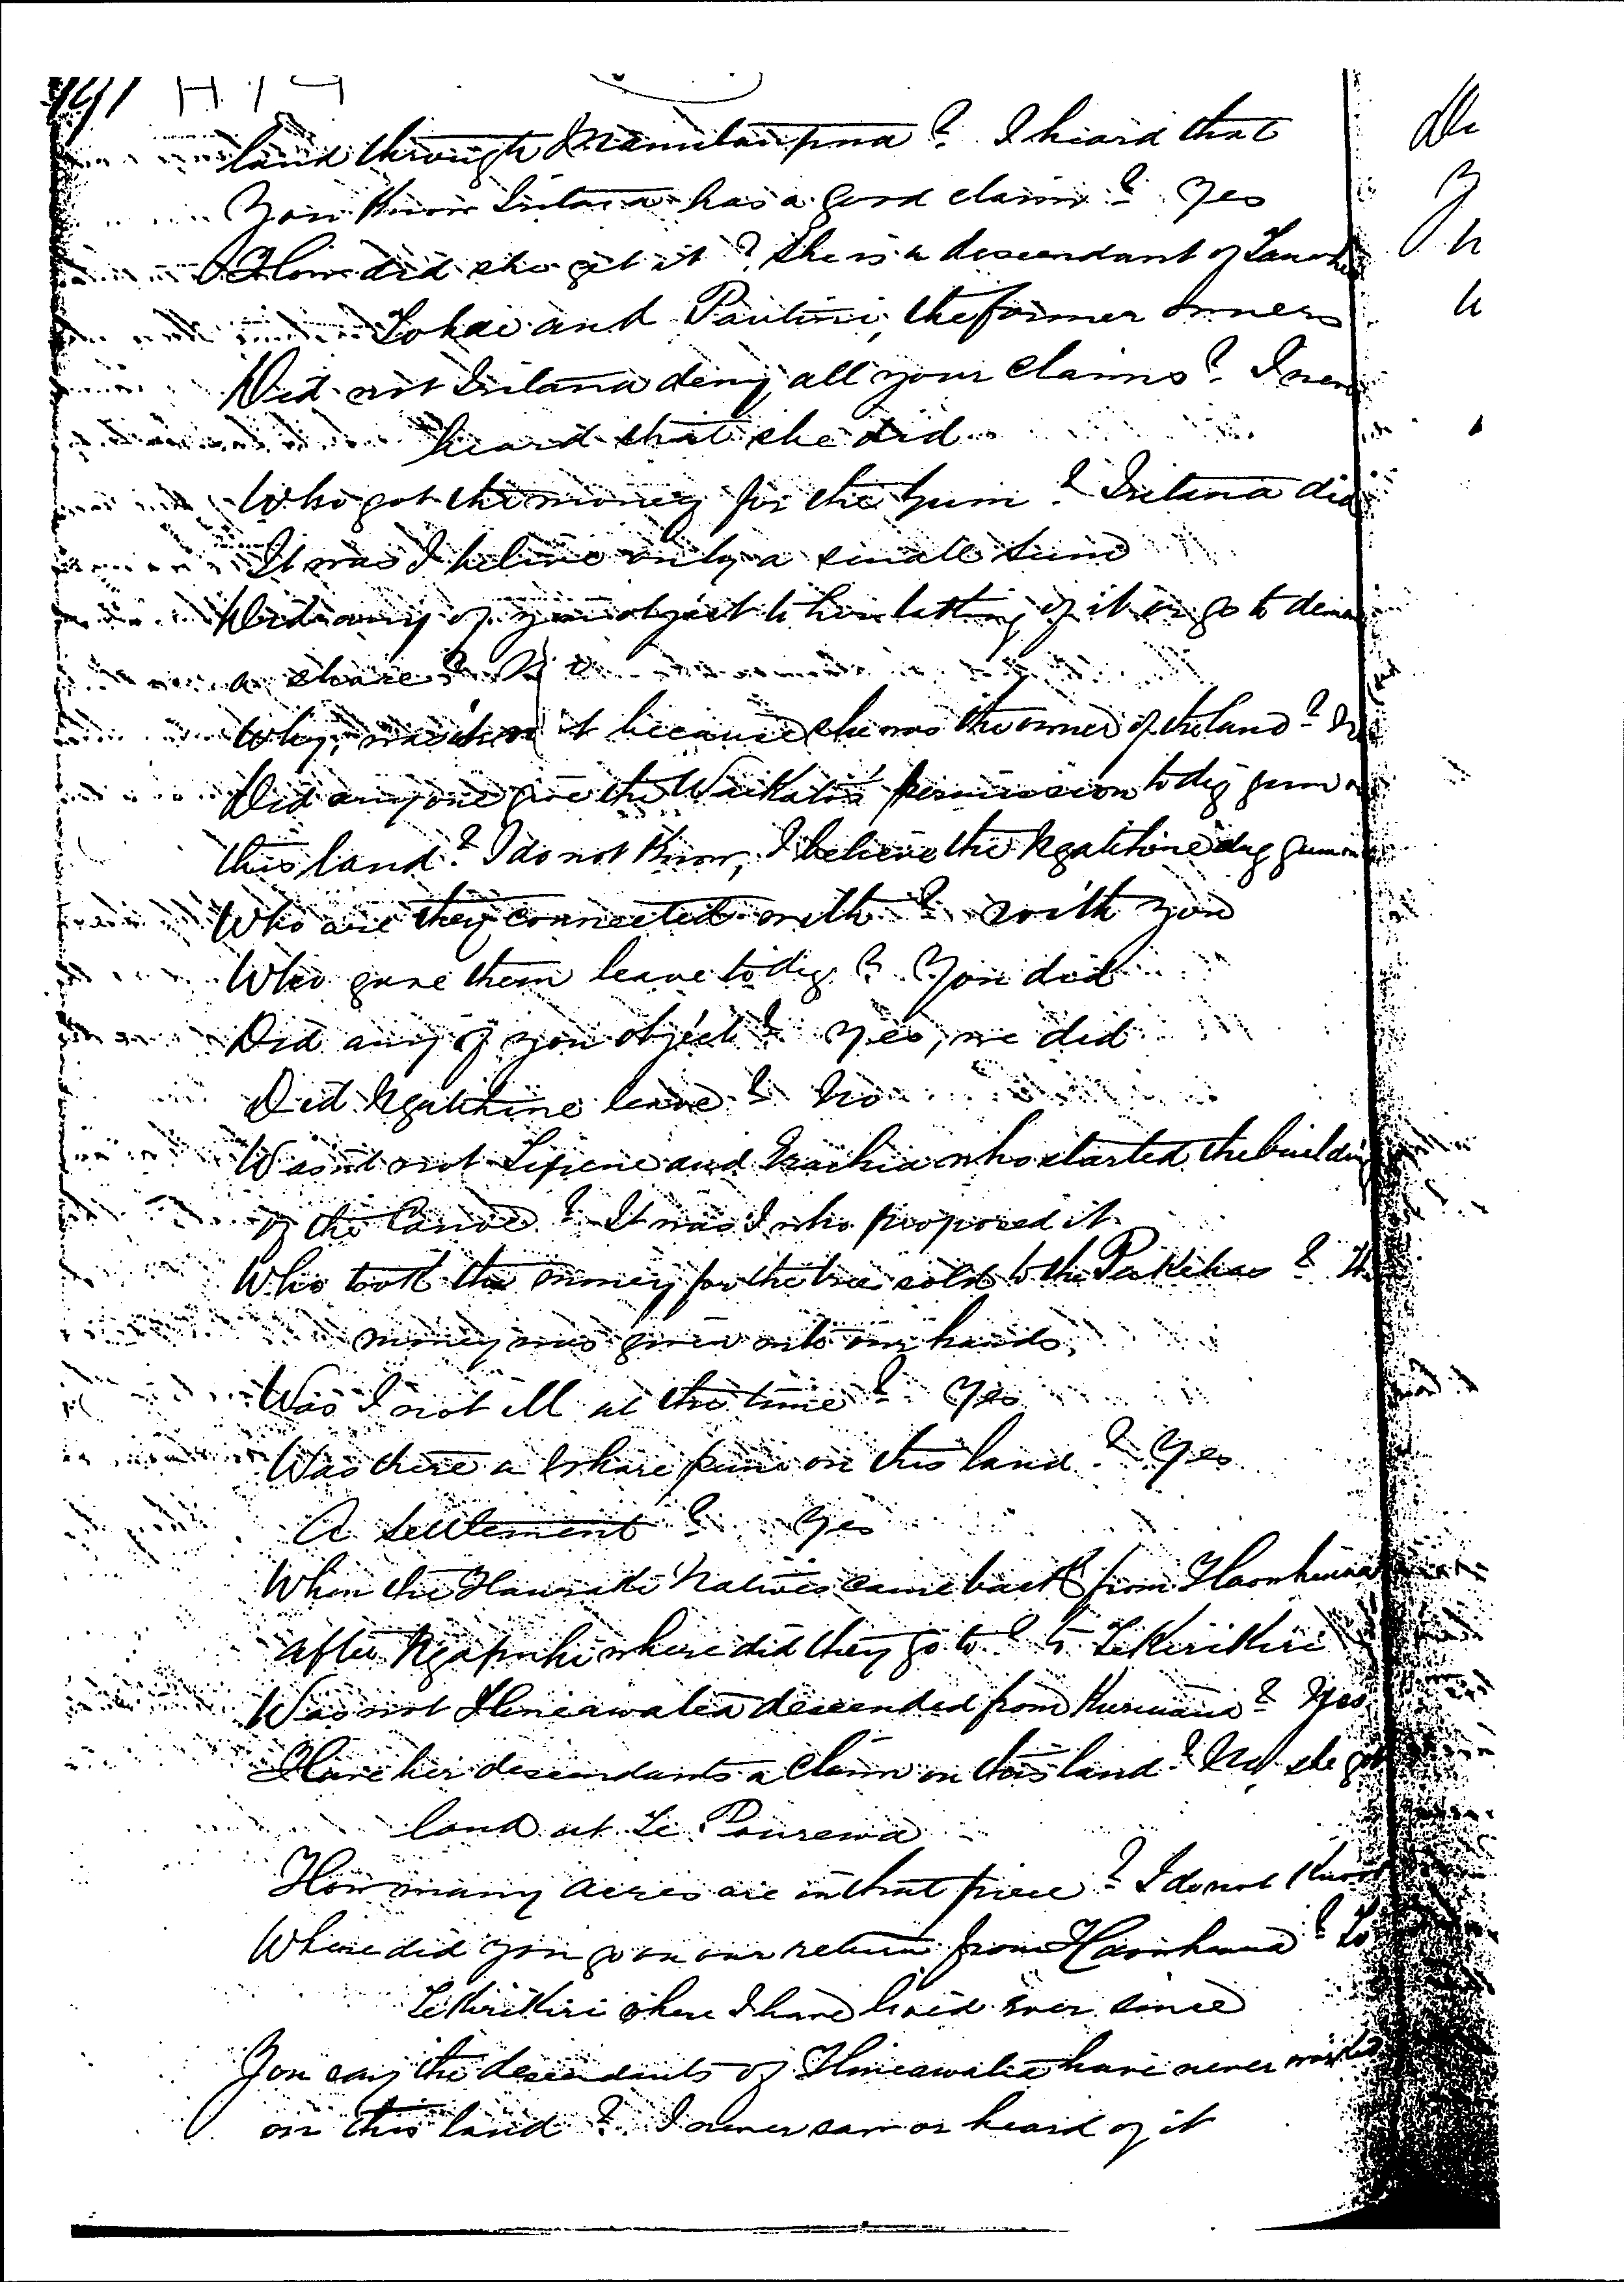 191 H. 14
land through ? I heard that
You know Iritana has a good claim? Yes
How did she get it? She is a descendant of
Tokai and Pautini, the former owners
Did not Iritana deny all your claims? I never
heard that she did
Who got the money for the gum? Iritana did
It was I believe only a small sum
Did any of you object to her letting of it or go to
a share? No
Why, was it not because she was the owner of the land? No
Did anyone give the Waikatos permission to dig gum
this land? I do not know, I believe the Ngatihine dug gum on
Who are they connected with? With you
Who gave them leave to dig? You did
Did any of you object? Yes, we did
Did Ngatihine leave? No
Was it not Tipene and who started the building
of the Canoe? It was I who proposed it
Who took the money for the tree sold to the Pakehas?
money was given into our hands.
Was I not ill at the time? Yes
Was there a on this land? Yes
A settlement? Yes
When the Hauraki Natives came back from Haowhenua
after Ngapuhi where did they go to? to Te Kirikiri
Was not Hineawatea descended from ? Yes
Have her descendants a claim on this land? No, she got
land at Te Pourewa
How many acres are in that piece? I do not know
Where did you go on our return from Haowhenua? To
Te Kirikiri where I have lived ever since
You say the descendants of Hineawatea have never
on this land? I never saw or heard of it